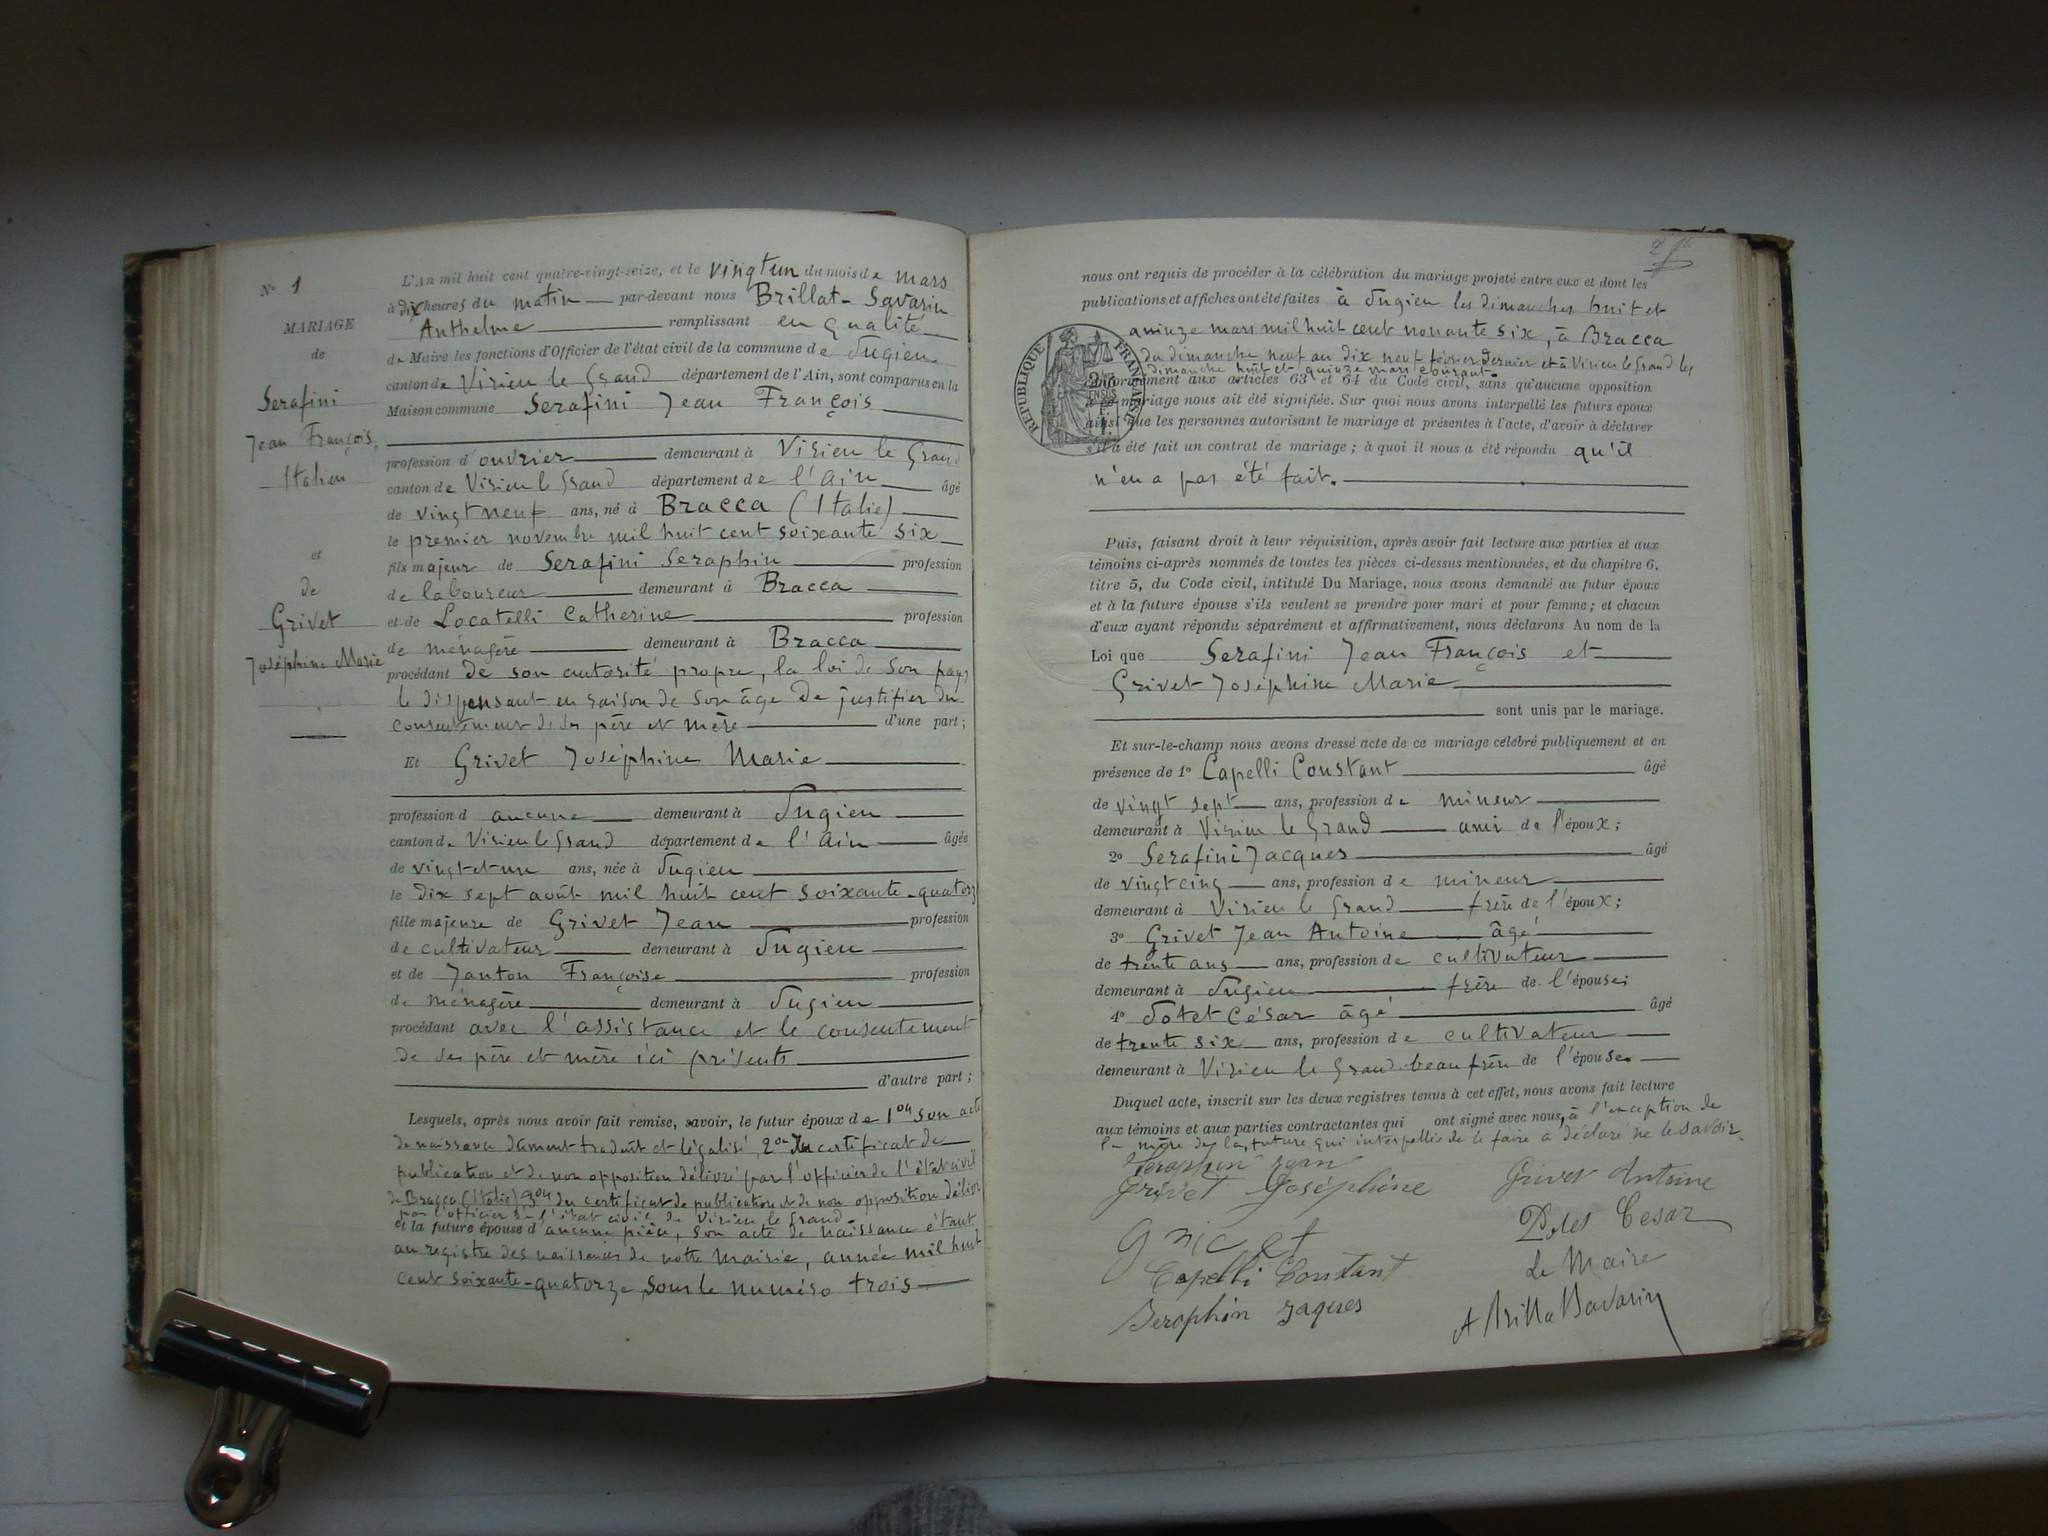 Nº 1
MARIAGE
de
Serafini
Jean François,
Italien
et
de
Grivet
Joséphine Marie
L'An mil huit cent quatre-vingt-seize, et le vingt un du mois de mars
à dix heures du matin par-devant nous Brillat-Savarin
Anthelme remplissant en qualité
de Maire les fonctions d'Officier de l'état civil de la commune de Pugieu
canton de Virieu le Grand département de l'Ain, sont comparus en la
Maison commune Serafini Jean François
profession d'ouvrier demeurant à Virieu le Grand
canton de Virieu le Grand département de l'Ain âgé
de vingt neuf ans, né à Bracca (Italie)
le premier novembre mil huit cent soixante six
fils majeur de Serafini Seraphin profession
de laboureur demeurant à Bracca
et de Locatelli Catherine profession
de ménagère demeurant à Bracca
procédant de son autorité propre, la loi de son pays
le dispensant en raison de son âge de justifier du
consentement de ses père et mère d'une part;
Et Grivet Joséphine Marie
profession d aucune demeurant à Pugieu
canton de Virieu le Grand département de l'Ain âgée
de vingt-et-un ans, née à Pugieu
le dix sept août mil huit cent soixante-quatorze
fille majeure de Grivet Jean profession
de cultivateur demeurant à Pugieu
et de Janton Françoise profession
de ménagère demeurant à Pugieu
procédant avec l'assistance et le consentement
de ses père et mère ici présents
d'autre part;
Lesquels, après nous avoir fait remise, savoir, le futur époux de 1º son acte
de naissance dûment traduit et légalisé, 2º du certificat de
publication et de non opposition délivré par l'officier de l'état civil
de Bracca (Italie) 3º du certificat de publication et de non opposition délivré
par l'officier de l'état civil de Virieu le Grand
et la future épouse d'aucune pièce, son acte de naissance étant
au registre des naissances de notre mairie, année mil huit
cent soixante-quatorze sous le numéro trois
nous ont requis de procéder à la célébration du mariage projeté entre eux et dont les
publications et affiches ont été faites à Pugieu les dimanches huit et
quinze mars mil huit cent nonante six, à Bracca
du dimanche neuf au dix neuf février dernier et à Virieu le Grand les
dimanche huit et quinze mars courant.
RÉPUBLIQUE FRANÇAISE
conformément aux articles 63 et 64 du Code civil, sans qu'aucune opposition
mariage nous ait été signifiée. Sur quoi nous avons interpellé les futurs époux
ainsi que les personnes autorisant le mariage et présentes à l'acte, d'avoir à déclarer
s'il a été fait un contrat de mariage; à quoi il nous a été répondu qu'il
n'en a pas été fait.
Puis, faisant droit à leur réquisition, après avoir fait lecture aux parties et aux
témoins ci-après nommés de toutes les pièces ci-dessus mentionnées, et du chapitre 6,
titre 5, du Code civil, intitulé Du Mariage, nous avons demandé au futur époux
et à la future épouse s'ils veulent se prendre pour mari et pour femme; et chacun
d'eux ayant répondu séparément et affirmativement, nous déclarons Au nom de la
Loi que Serafini Jean François et
Grivet Joséphine Marie
sont unis par le mariage.
Et sur-le-champ nous avons dressé acte de ce mariage célébré publiquement et en
présence de 1º Capelli Constant âgé
de vingt sept ans, profession de mineur
demeurant à Virieu le Grand ami de l'époux;
2º Serafini Jacques âgé
de vingt cinq ans, profession de mineur
demeurant à Virieu le Grand frère de l'époux;
3º Grivet Jean Antoine âgé
de trente ans ans, profession de cultivateur
demeurant à Pugieu frère de l'épouse;
4º Potet César âgé âgé
de trente six ans, profession de cultivateur
demeurant à Virieu le Grand beau frère de l'épouse.
Duquel acte, inscrit sur les deux registres tenus à cet effet, nous avons fait lecture
aux témoins et aux parties contractantes qui ont signé avec nous, à l'exception de
la mère de la future qui interpellée de le faire a déclaré ne le savoir.
Seraphin Jean
Grivet Joséphine
Grivet Antoine
Grivet
Potet Cesar
Capelli Constant
Le Maire
Seraphin Jaques
A Brillat Savarin